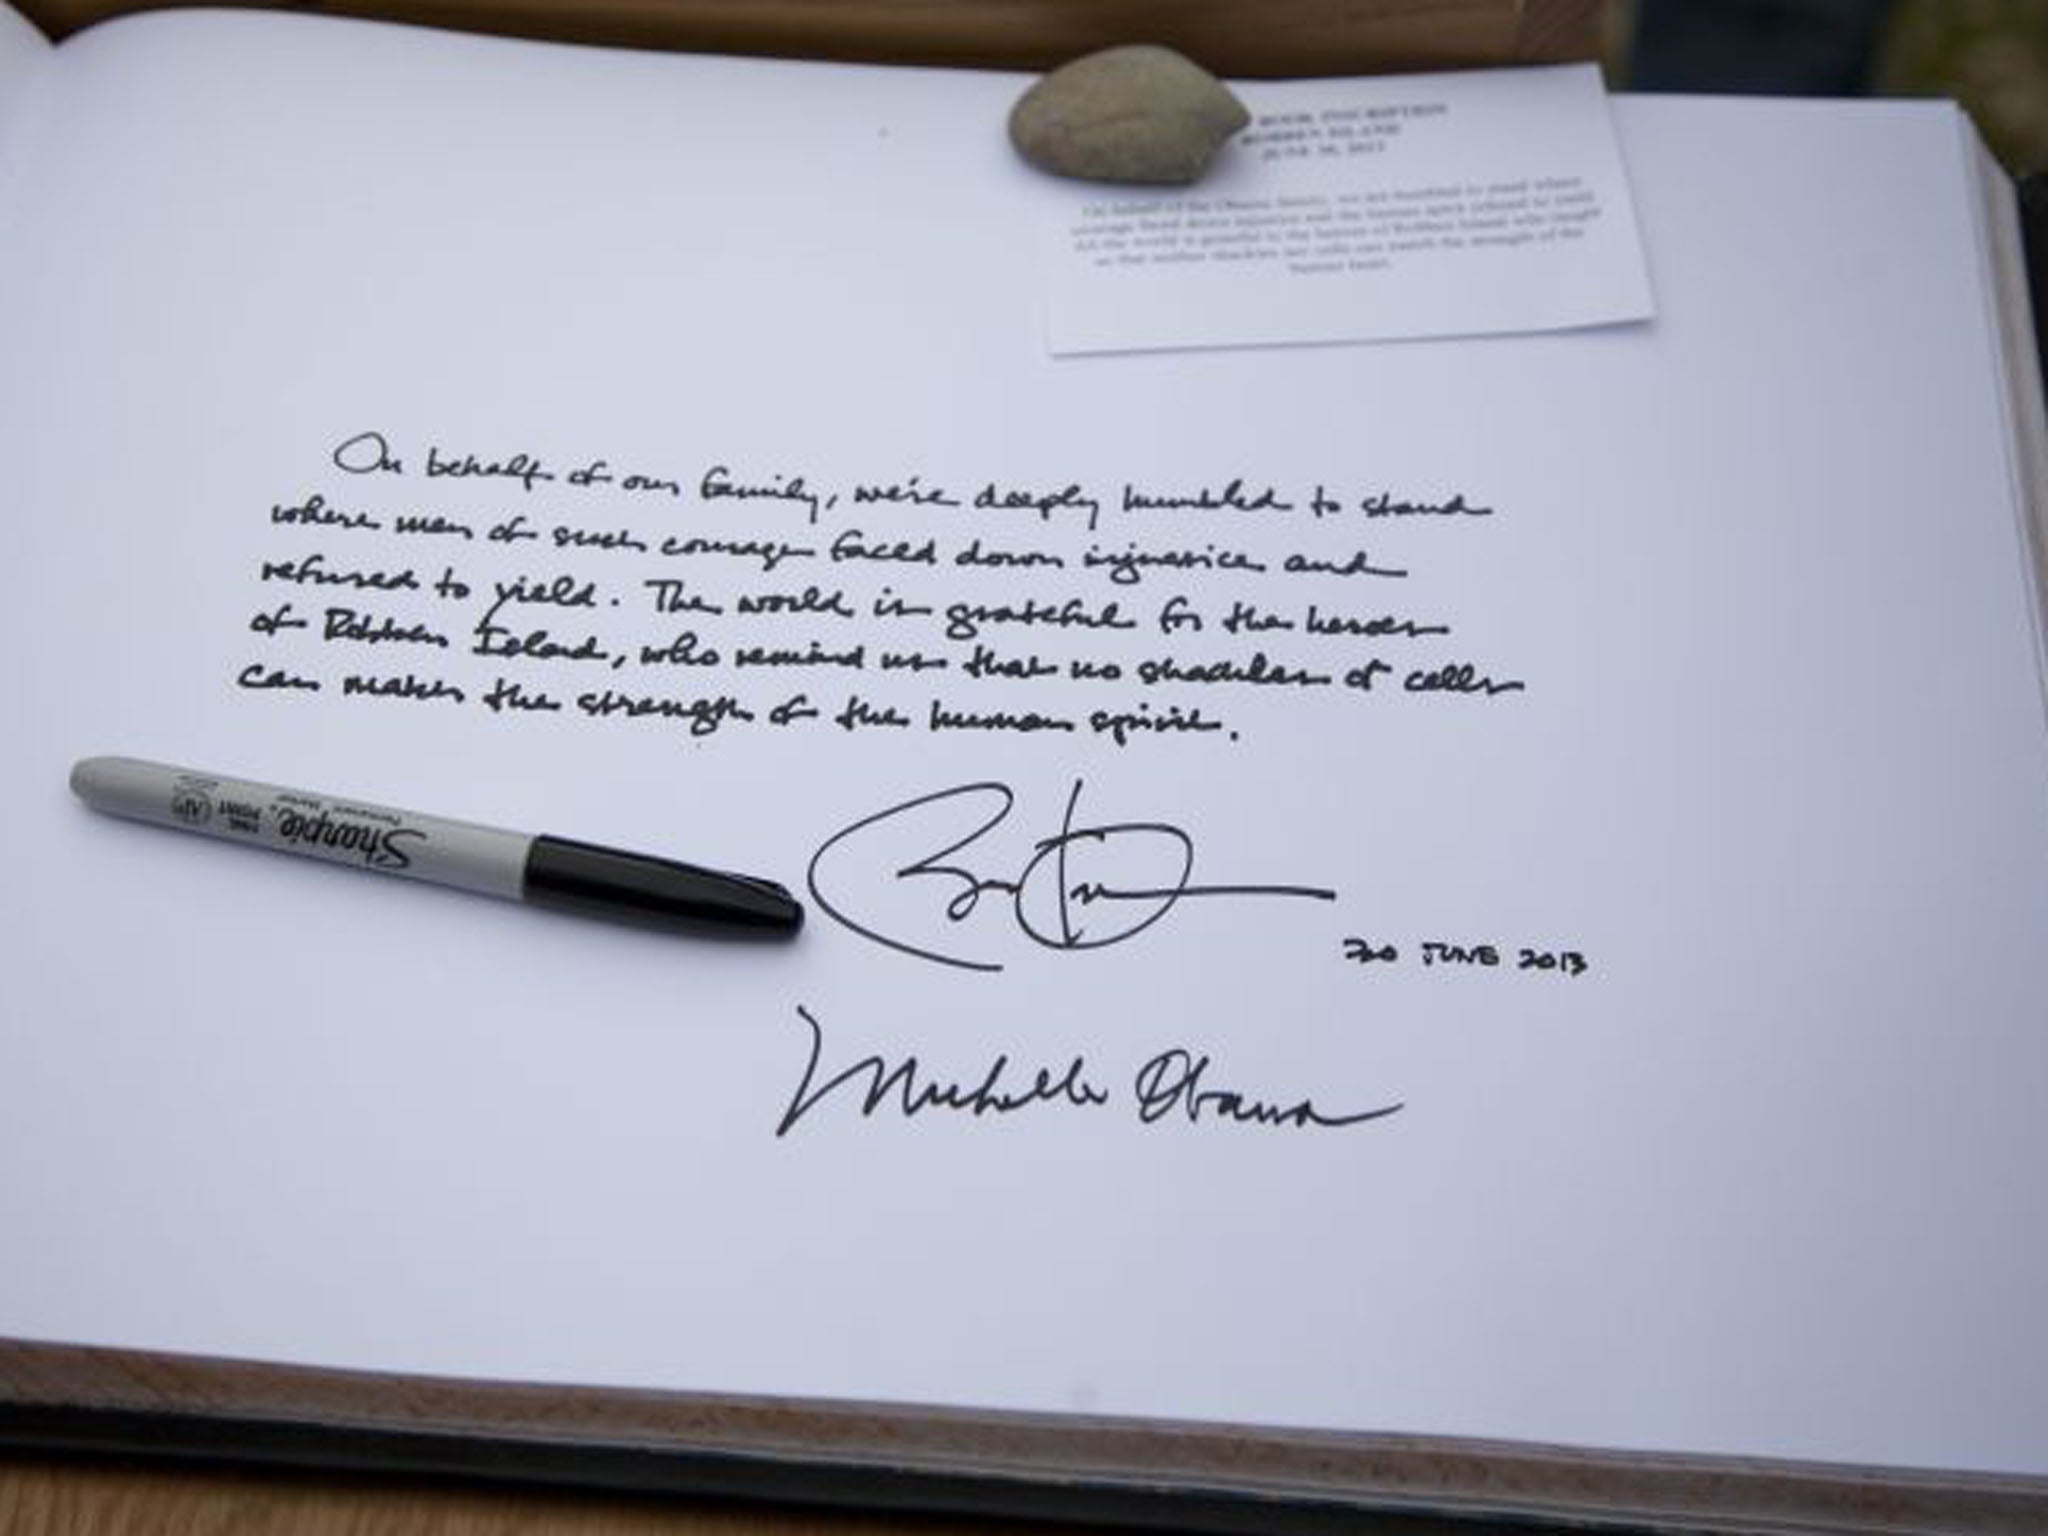 BOOK INSCRIPTION
ROBBEN ISLAND
JUNE 30, 2013
On behalf of the Obama family, we are humbled to stand where
courage faced down injustice and the human spirit refused to yield.
All the world is grateful to the heroes of Robben Island, who taught
us that neither shackles nor cells can match the strength of the
human heart.
On behalf of our family, we're deeply humbled to stand
where men of such courage faced down injustice and
refused to yield. The world is grateful for the heroes
of Robben Island, who remind us that no shackles or cells
can match the strength of the human spirit.
30 JUNE 2013
Michelle Obama
Sharpie
Permanent Marker
FINE POINT
AP